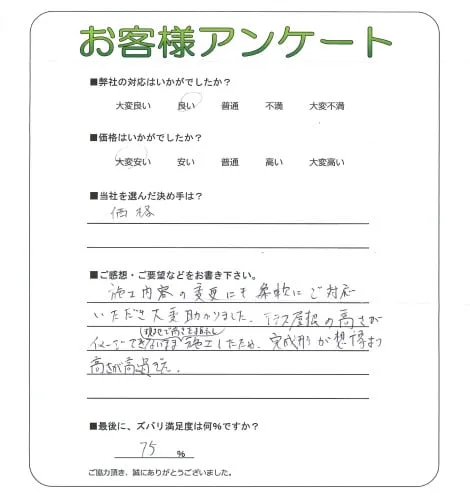 お客様アンケート
■弊社の対応はいかがでしたか？
大変良い 良い 普通 不満 大変不満
■価格はいかがでしたか？
大変安い 安い 普通 高い 大変高い
■当社を選んだ決め手は？
価格
■ご感想・ご要望などをお書き下さい。
施工内容の変更にも柔軟にご対応
いただき大変助かりました。テラス屋根の高さが
現地で高さを指示し
イメージできないまま施工したため、完成形が想像より
高さが高過ぎた。
■最後に、ズバリ満足度は何％ですか？
75 ％
ご協力頂き、誠にありがとうございました。